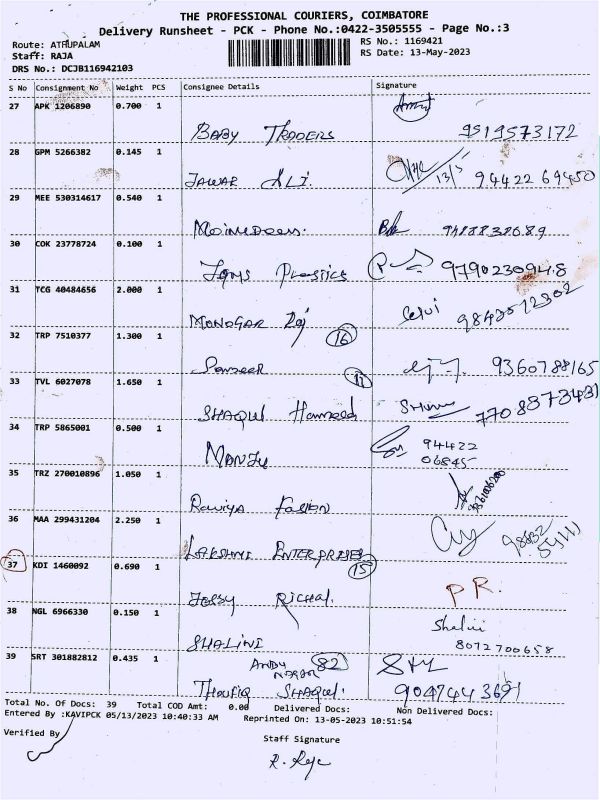 THE PROFESSIONAL COURIERS, COIMBATORE
Delivery Runsheet - PCK - Phone No.:0422-3505555 - Page No.:3
Route: ATHUPALAM
RS No.: 1169421
Staff: RAJA
RS Date: 13-May-2023
DRS No.: DCJB116942103
S No Consignment No Weight PCS Consignee Details Signature
27 APK 1206890 0.700 1
BABY TRADERS 9519573172
28 GPM 5266382 0.145 1
JAWAR ALI. 13/5 94422 69450
29 MEE 530314617 0.540 1
Moineddeen.
30 COK 23778724 0.100 1
Plastics 9790230948
31 TCG 40484656 2.000 1
MANOGAR Raj Selvi 9843512302
32 TRP 7510377 1.300 1 16
9360788165
33 TVL 6027078 1.650 1 17
SHAQUL Hameed 7708873431
34 TRP 5865001 0.500 1
MANJU 94422
06845
35 TRZ 270010896 1.050 1
Raviya Fasion
36 MAA 299431204 2.250 1
LAKSHMI ENTERPRISES
37 KDI 1460092 0.690 1 15
Jessy Richal. P R.
38 NGL 6966330 0.150 1
SHALINI Shalini 8072700658
39 SRT 301882812 0.435 1
ANDY NAGAR 82
THOUFIQ SHAQUL. 9047443691
Total No. Of Docs: 39 Total COD Amt: 0.00 Delivered Docs: Non Delivered Docs:
Entered By :KAVIPCK 05/13/2023 10:40:33 AM Reprinted On: 13-05-2023 10:51:54
Verified By
Staff Signature
R. Raja